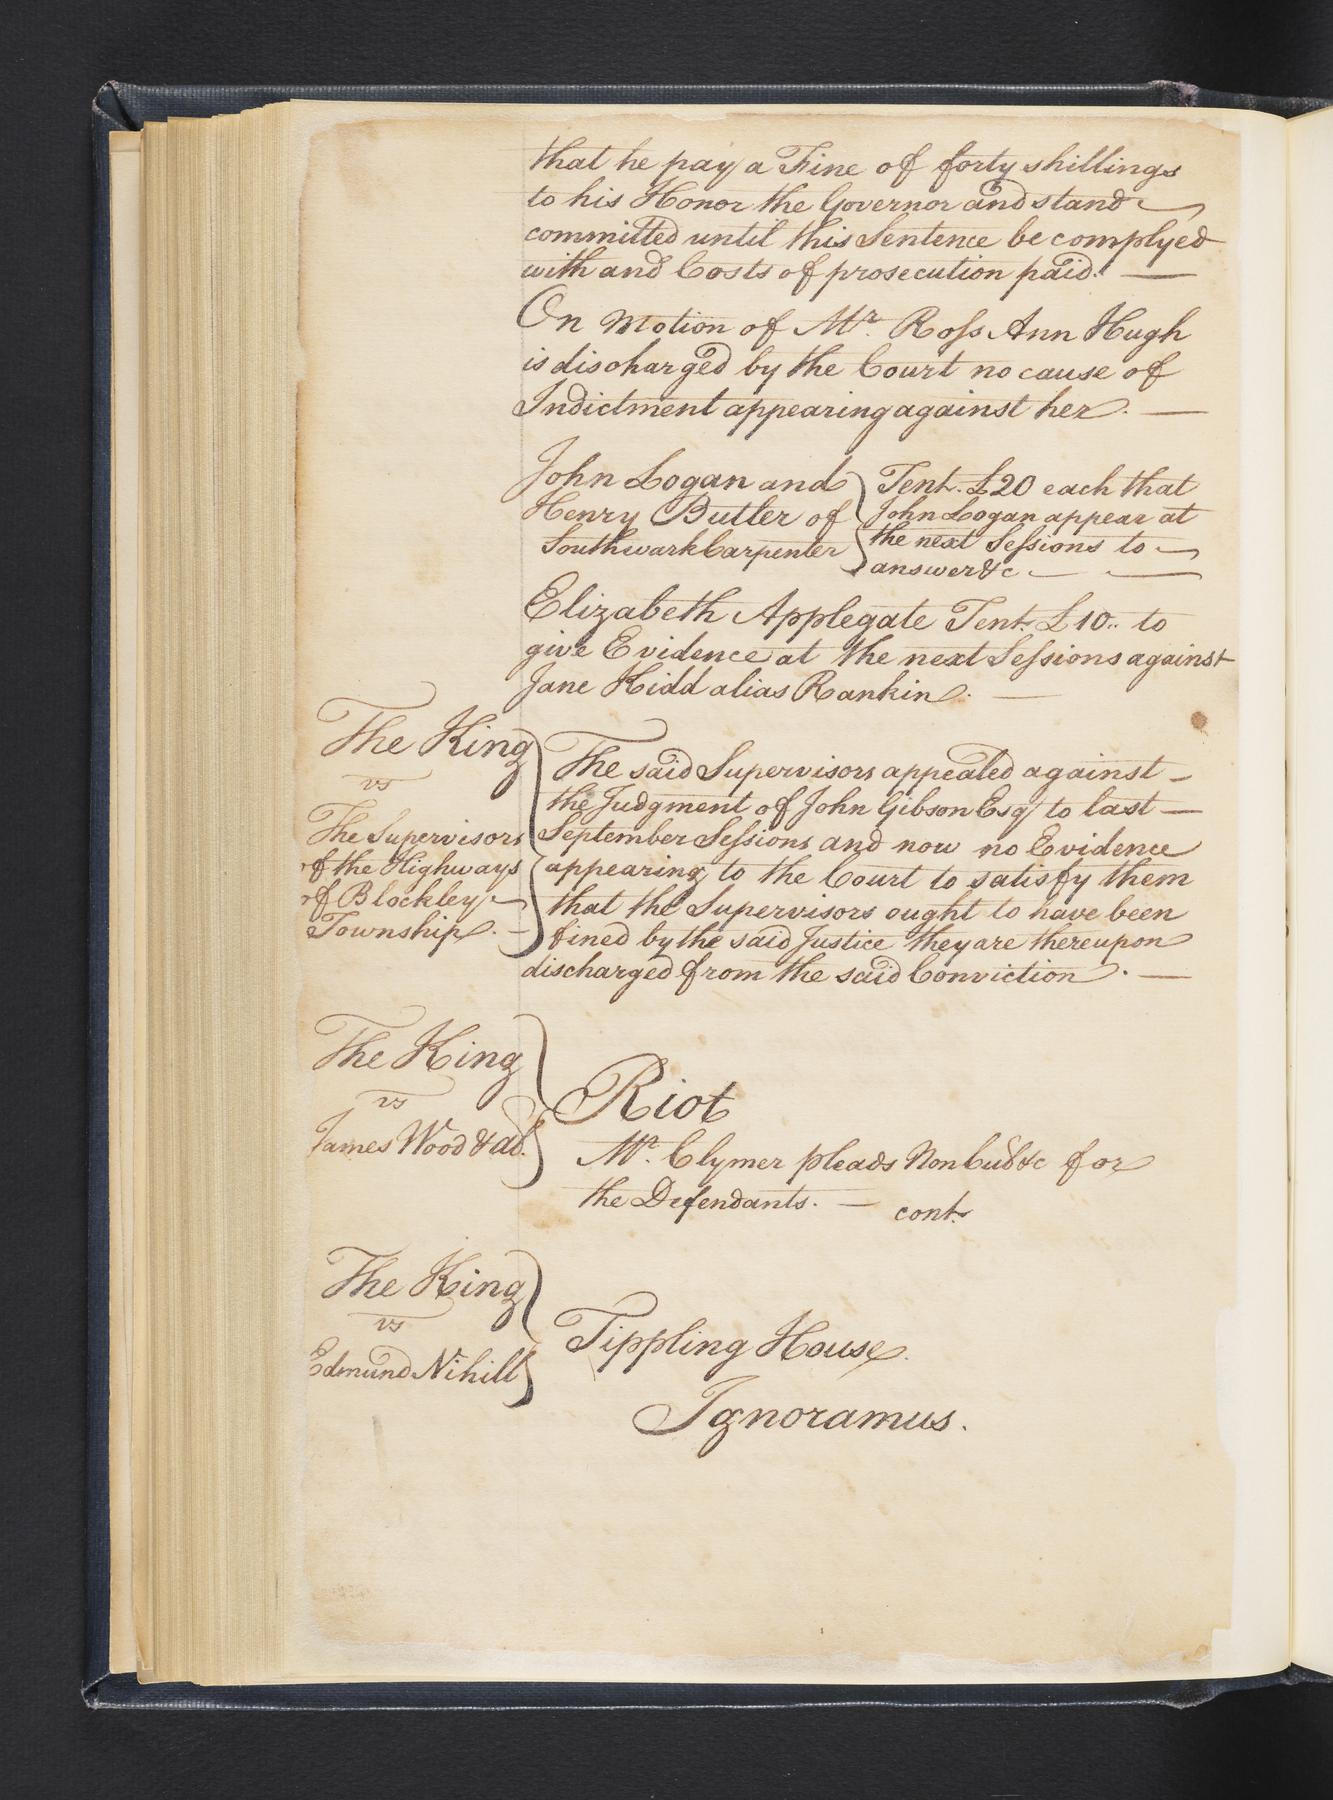 that he pay a Fine of forty shillings
to his Honor the Governor and stand
committed until this Sentence be complyed
with and Costs of prosecution paid. —
On Motion of Mr. Ross Ann Hugh
is discharged by the Court no cause of
Indictment appearing against her. —
John Logan and
Henry Butler of
Southwark Carpenter
Tent. £20 each that
John Logan appear at
the next Sessions to —
answer &c — —
Elizabeth Applegate Tent. £10.. to
give Evidence at the next Sessions against
Jane Kidd alias Rankin. —
The King
vs
The Supervisors
of the Highways
of Blockley —
Township. —
The said Supervisors appealed against —
the Judgment of John Gibson Esqr to last —
September Sessions and now no Evidence
appearing to the Court to satisfy them
that the Supervisors ought to have been
fined by the said Justice they are thereupon
discharged from the said Conviction. —
The King
vs
James Wood & al.
Riot
Mr. Clymer pleads Non Cul &c for
the Defendants. — cont.
The King
vs
Edmund Nihill
Tippling House.
Ignoramus.